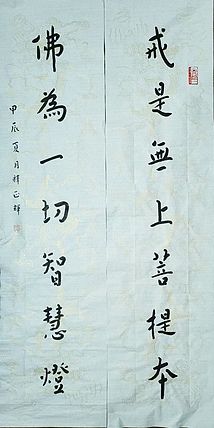 戒是無上菩提本
佛為一切智慧燈
甲辰夏月